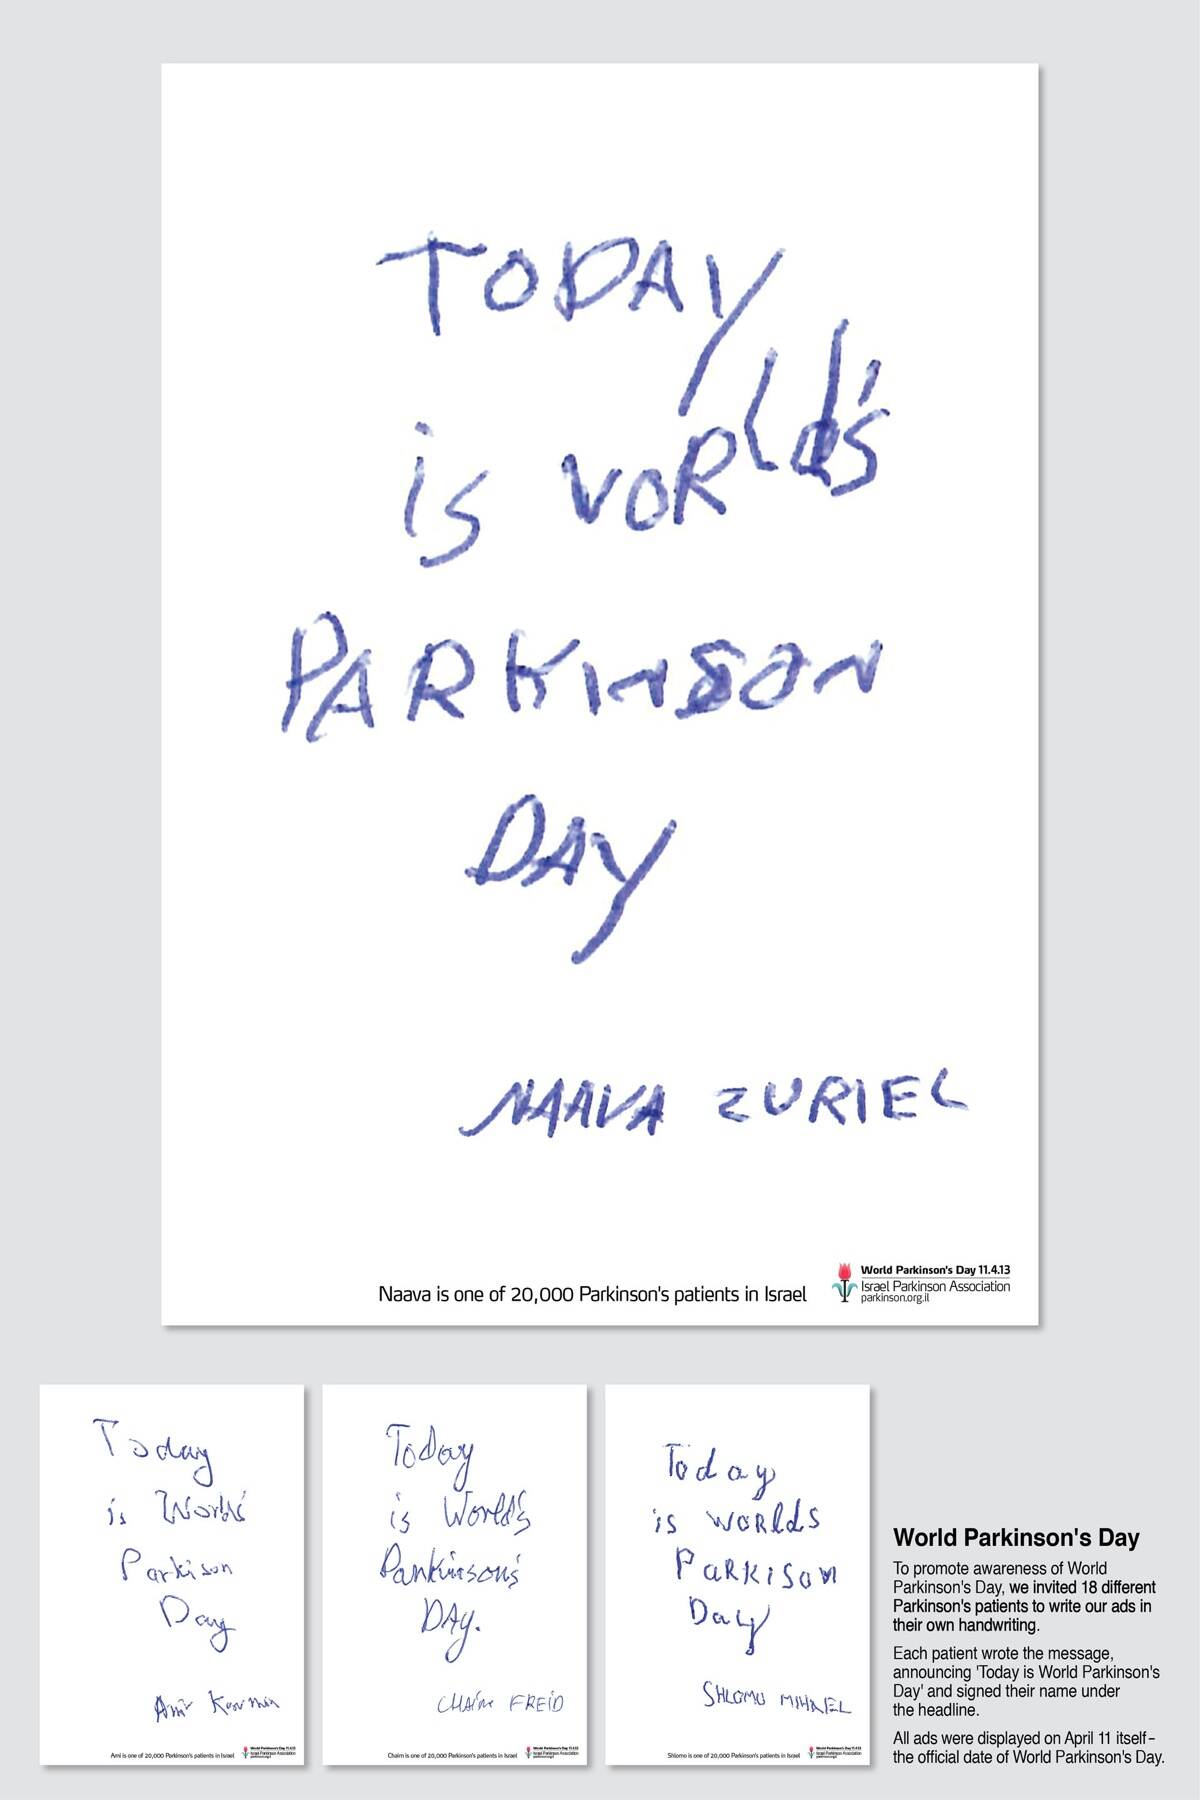 TODAY
is VORld's
PARKINSON
DAY
NAAVA ZURIEL
Naava is one of 20,000 Parkinson's patients in Israel
World Parkinson's Day 11.4.13
Israel Parkinson Association
parkinson.org.il
Today
is World's
Parkison
Day
Ami
Ami is one of 20,000 Parkinson's patients in Israel
World Parkinson's Day 11.4.13
Israel Parkinson Association
parkinson.org.il
Today
is World's
Parkinson's
DAY.
CHAIM FREID
Chaim is one of 20,000 Parkinson's patients in Israel
World Parkinson's Day 11.4.13
Israel Parkinson Association
parkinson.org.il
Today
is WORlds
PaRKISon
Day
SHLOMO MIHAEL
Shlomo is one of 20,000 Parkinson's patients in Israel
World Parkinson's Day 11.4.13
Israel Parkinson Association
parkinson.org.il
World Parkinson's Day
To promote awareness of World
Parkinson's Day, we invited 18 different
Parkinson's patients to write our ads in
their own handwriting.
Each patient wrote the message,
announcing 'Today is World Parkinson's
Day' and signed their name under
the headline.
All ads were displayed on April 11 itself–
the official date of World Parkinson's Day.